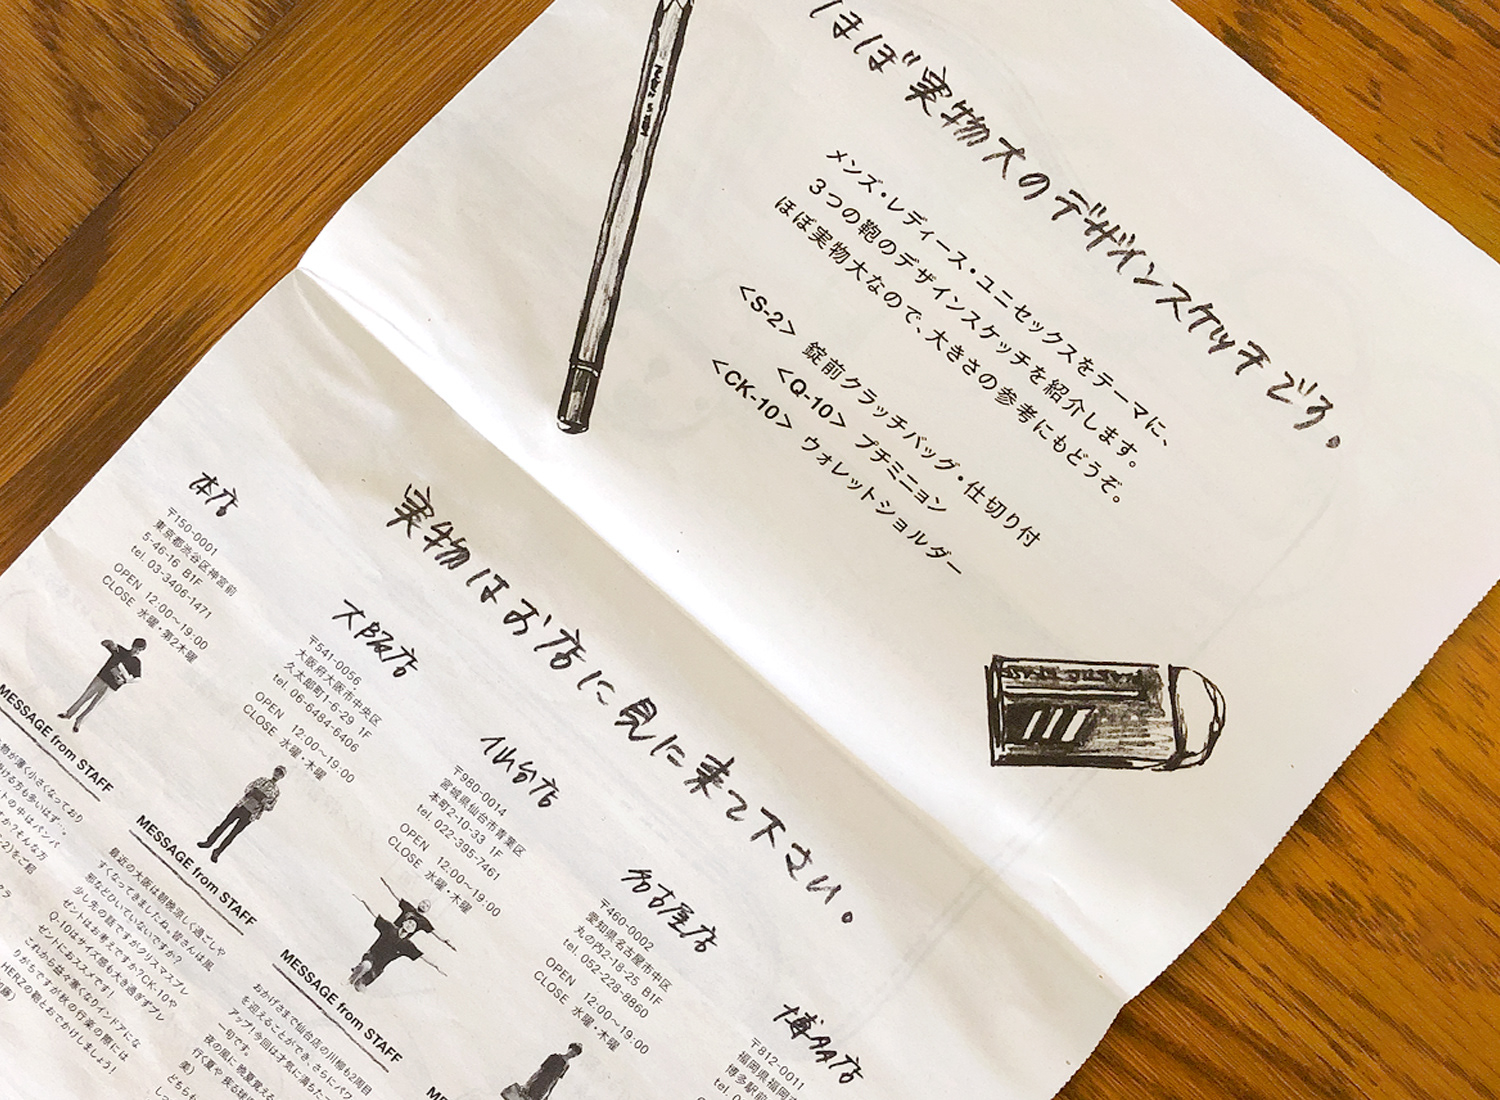 ほぼ実物大のデザインスケッチでう。
メンズ・レディース・ユニセックスをテーマに、
3つの鞄のデザインスケッチを紹介します。
ほぼ実物大なので、大きさの参考にもどうぞ。
<S-2> 錠前クラッチバッグ・仕切り付
<Q-10> プチミニョン
<CK-10> ウォレットショルダー
実物はお店に見に来て下さい。
本店
〒150-0001
東京都渋谷区神宮前
5-46-16 B1F
tel. 03-3406-1471
OPEN 12:00〜19:00
CLOSE 水曜・第2木曜
MESSAGE from STAFF
大阪店
〒541-0056
大阪府大阪市中央区
久太郎町1-6-29 1F
tel. 06-6484-6406
OPEN 12:00〜19:00
CLOSE 水曜・木曜
MESSAGE from STAFF
最近の大阪は朝晩涼しく過ごしや
すくなってきましたね。皆さんは風
邪などひいていないですか?
少し先の話ですがクリスマスプレ
ゼントはお考えですか?CK-10や
Q-10はサイズ感も大き過ぎずプレ
ゼントにおススメです!
これから益々寒くなりインドアにな
りがちですが秋の行楽の際には
HERZの鞄とおでかけしましょう!
仙台店
〒980-0014
宮城県仙台市青葉区
本町2-10-33 1F
tel. 022-395-7461
OPEN 12:00〜19:00
CLOSE 水曜・木曜
MESSAGE from STAFF
おかげさまで仙台店の川柳も2周目
を迎えることができ、さらにパワ
アップ!今回は才気に満ちた
一句です。
名古屋店
〒460-0002
愛知県名古屋市中区
丸の内2-18-25 B1F
tel. 052-228-8860
OPEN 12:00〜19:00
CLOSE 水曜・木曜
博多店
〒812-0011
福岡県福岡
博多駅前